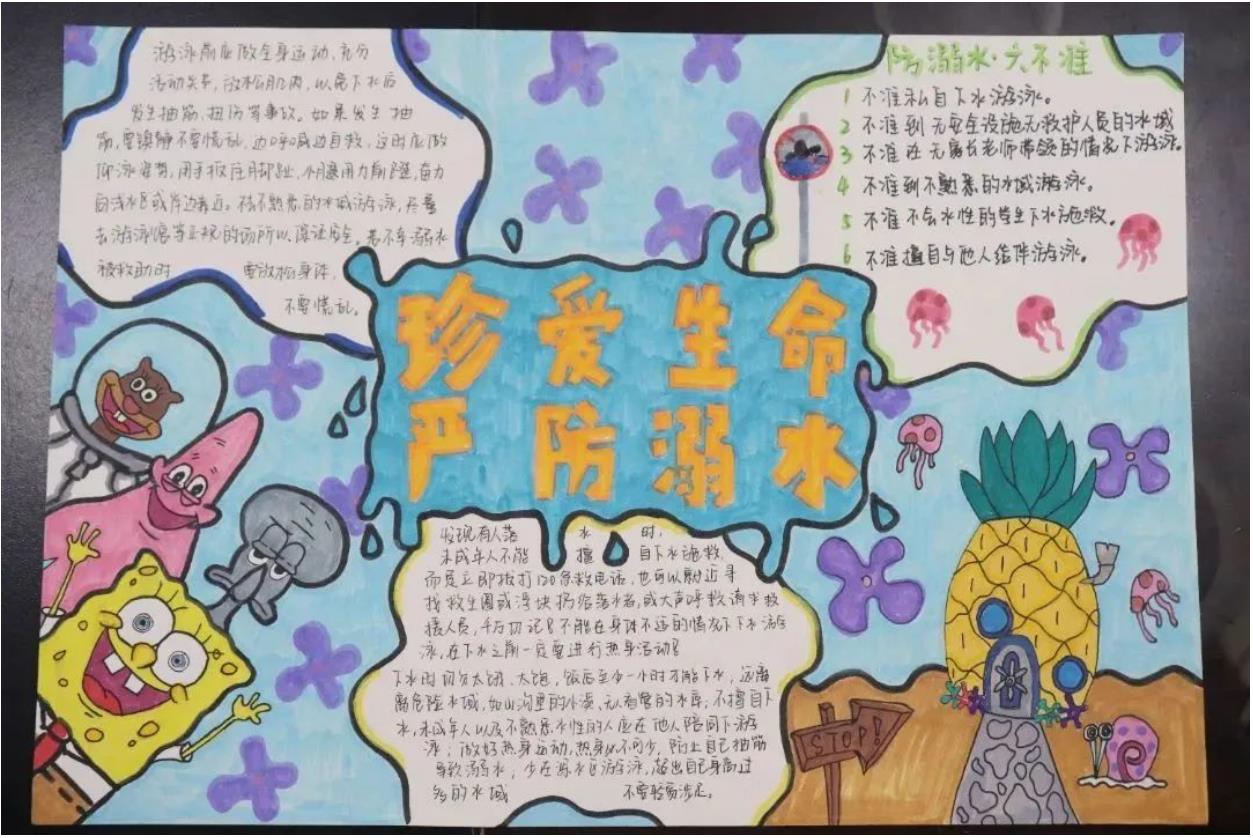 游泳前应做全身运动,充分
活动关节,放松肌肉,以免下水后
发生抽筋,扭伤等事故。如果发生抽
筋,要镇静不要慌乱,边呼喊边自救,这时应做
仰泳姿势,用手扳住脚趾,小腿用力前蹬,奋力
向浅水区或岸边靠近。不熟悉的水域游泳,尽量
去游泳馆等正规的场所以保证安全。若不幸溺水
被救助时 要放松身体,
不要慌乱。
防溺水·六不准
1 不准私自下水游泳。
2 不准到无安全设施无救护人员的水域
3 不准在无家长老师带领的情况下游泳。
4 不准到不熟悉的水域游泳。
5 不准不会水性的学生下水施救。
6 不准擅自与他人结伴游泳。
珍爱生命
严防溺水
发现有人落 水 时,
未成年人不能 擅 自下水施救,
而是立即拨打120急救电话,也可以就近寻
找救生圈或浮块扔给落水者,或大声呼救请求救
援人员,千万切记!不能在身体不适的情况下下水游
泳,在下水之前一定要进行热身活动!
下水时切勿太饿、太饱,饭后至少一小时才能下水,远离
离危险水域,如山沟里的小溪,无看管的水库;不擅自下
水,未成年人以及不熟悉水性的人应在他人陪同下游
泳;做好热身运动,热身必不可少,防止自己抽筋
导致溺水,少在深水区游泳,超出自己身高过
多的水域 不要轻易涉足。
STOP!